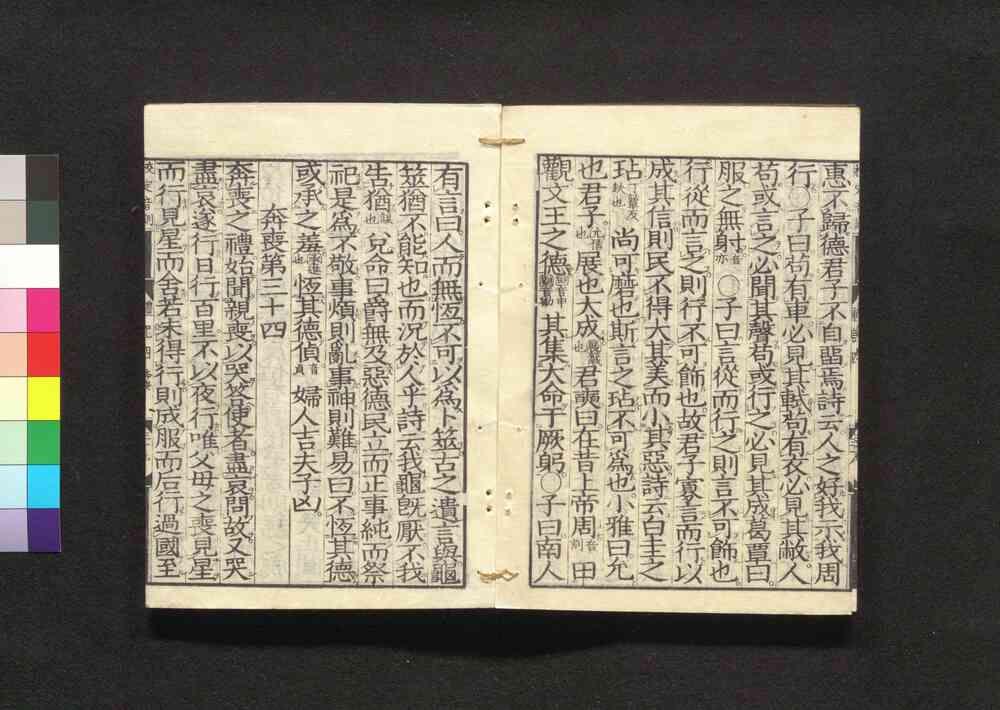 惠不歸德君子不自留焉詩云人之好我示我周
行○子曰苟有車必見其軾苟有衣必見其敝人
苟或言之必聞其聲苟或行之必見其成葛覃曰
服之無射音亦○子曰言從而行之則言不可飾也
行從而言之則行不可飾也故君子寡言而行以
成其信則民不得大其美而小其惡詩云白圭之
玷尚可磨也斯言之玷不可爲也小雅曰允
也君子展也大成君奭曰在昔上帝周田
觀文王之德其集大命于厥躬○子曰南人
有言曰人而無恆不可以爲卜筮古之遺言與龜
筮猶不能知也而況於人乎詩云我龜旣厭不我
告猶兌命曰爵無及惡德民立而正事純而祭
祀是爲不敬事煩則亂事神則難易曰不恆其德
或承之羞恆其德偵音貞婦人吉夫子凶
奔喪第三十四
奔喪之禮始聞親喪以哭答使者盡哀問故又哭
盡哀遂行日行百里不以夜行唯父母之喪見星
而行見星而舍若未得行則成服而后行過國至